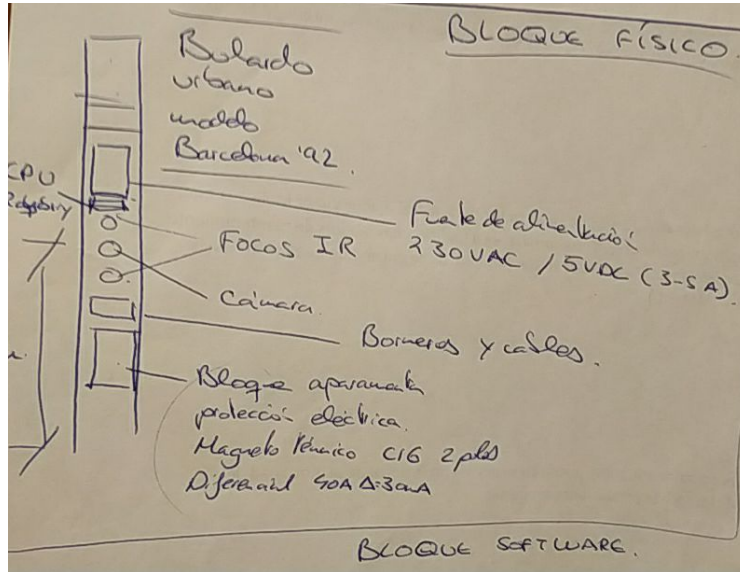 BLOQUE FÍSICO.
Bolardo
urbano
modelo
Barcelona '92.
CPU
Fuente de alimentación
230VAC / 5VDC (3-5A).
FOCOS IR
Cámara.
Borneros y cables.
Bloque aparamenta
protección eléctrica.
Magneto térmico C16 2 polos
Diferencial 40A Δ=30mA
BLOQUE SOFTWARE.